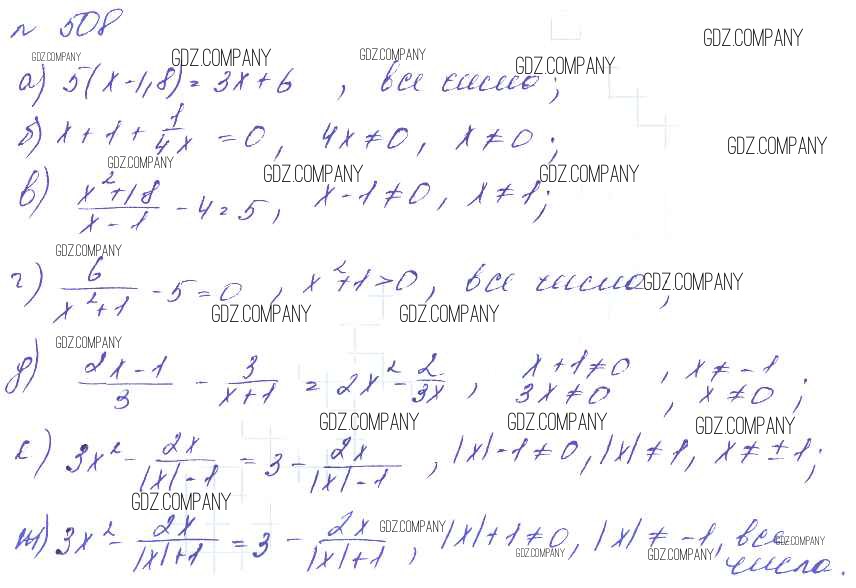 № 508
GDZ.COMPANY GDZ.COMPANY GDZ.COMPANY GDZ.COMPANY GDZ.COMPANY
а) 5(x-1,8) = 3x+6 , все числа;
б) x + 1 + 1/4x = 0, 4x ≠ 0, x ≠ 0;
GDZ.COMPANY GDZ.COMPANY GDZ.COMPANY GDZ.COMPANY
в) x²+18/x-1 - 4 = 5, x-1 ≠ 0, x ≠ 1;
GDZ.COMPANY
г) 6/x²+1 - 5 = 0, x²+1 > 0, все числа,
GDZ.COMPANY GDZ.COMPANY GDZ.COMPANY
GDZ.COMPANY
д) 2x-1/3 - 3/x+1 = 2x² - 2/3x, x+1 ≠ 0, x ≠ -1
3x ≠ 0, x ≠ 0;
GDZ.COMPANY GDZ.COMPANY GDZ.COMPANY
е) 3x² - 2x/|x|-1 = 3 - 2x/|x|-1, |x|-1 ≠ 0, |x| ≠ 1, x ≠ ±1;
GDZ.COMPANY
ж) 3x² - 2x/|x|+1 = 3 - 2x/|x|+1, |x|+1 ≠ 0, |x| ≠ -1, все
числа.
GDZ.COMPANY GDZ.COMPANY GDZ.COMPANY GDZ.COMPANY